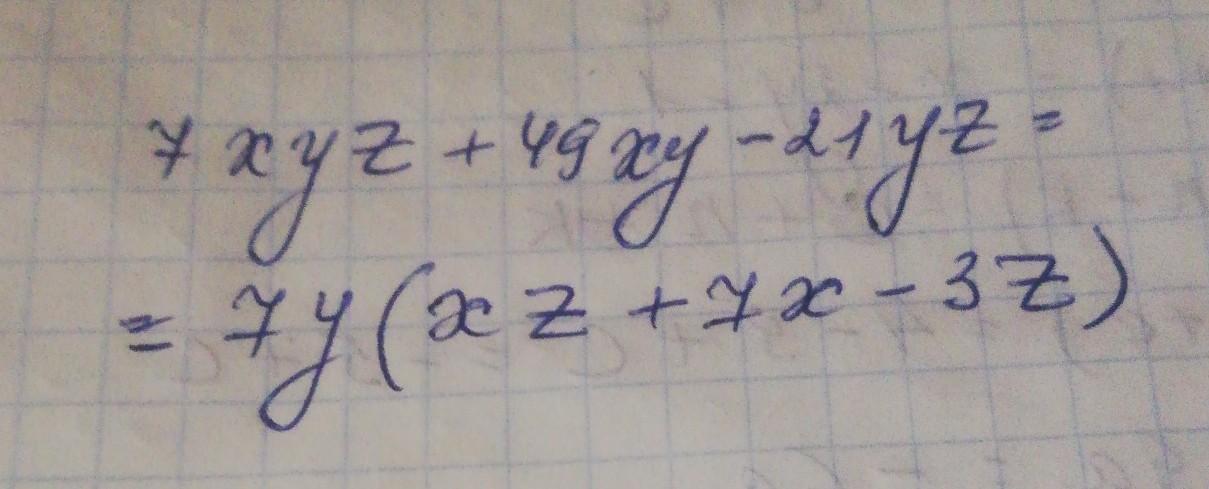 7xyz + 49xy - 21yz =
= 7y(xz + 7x - 3z)